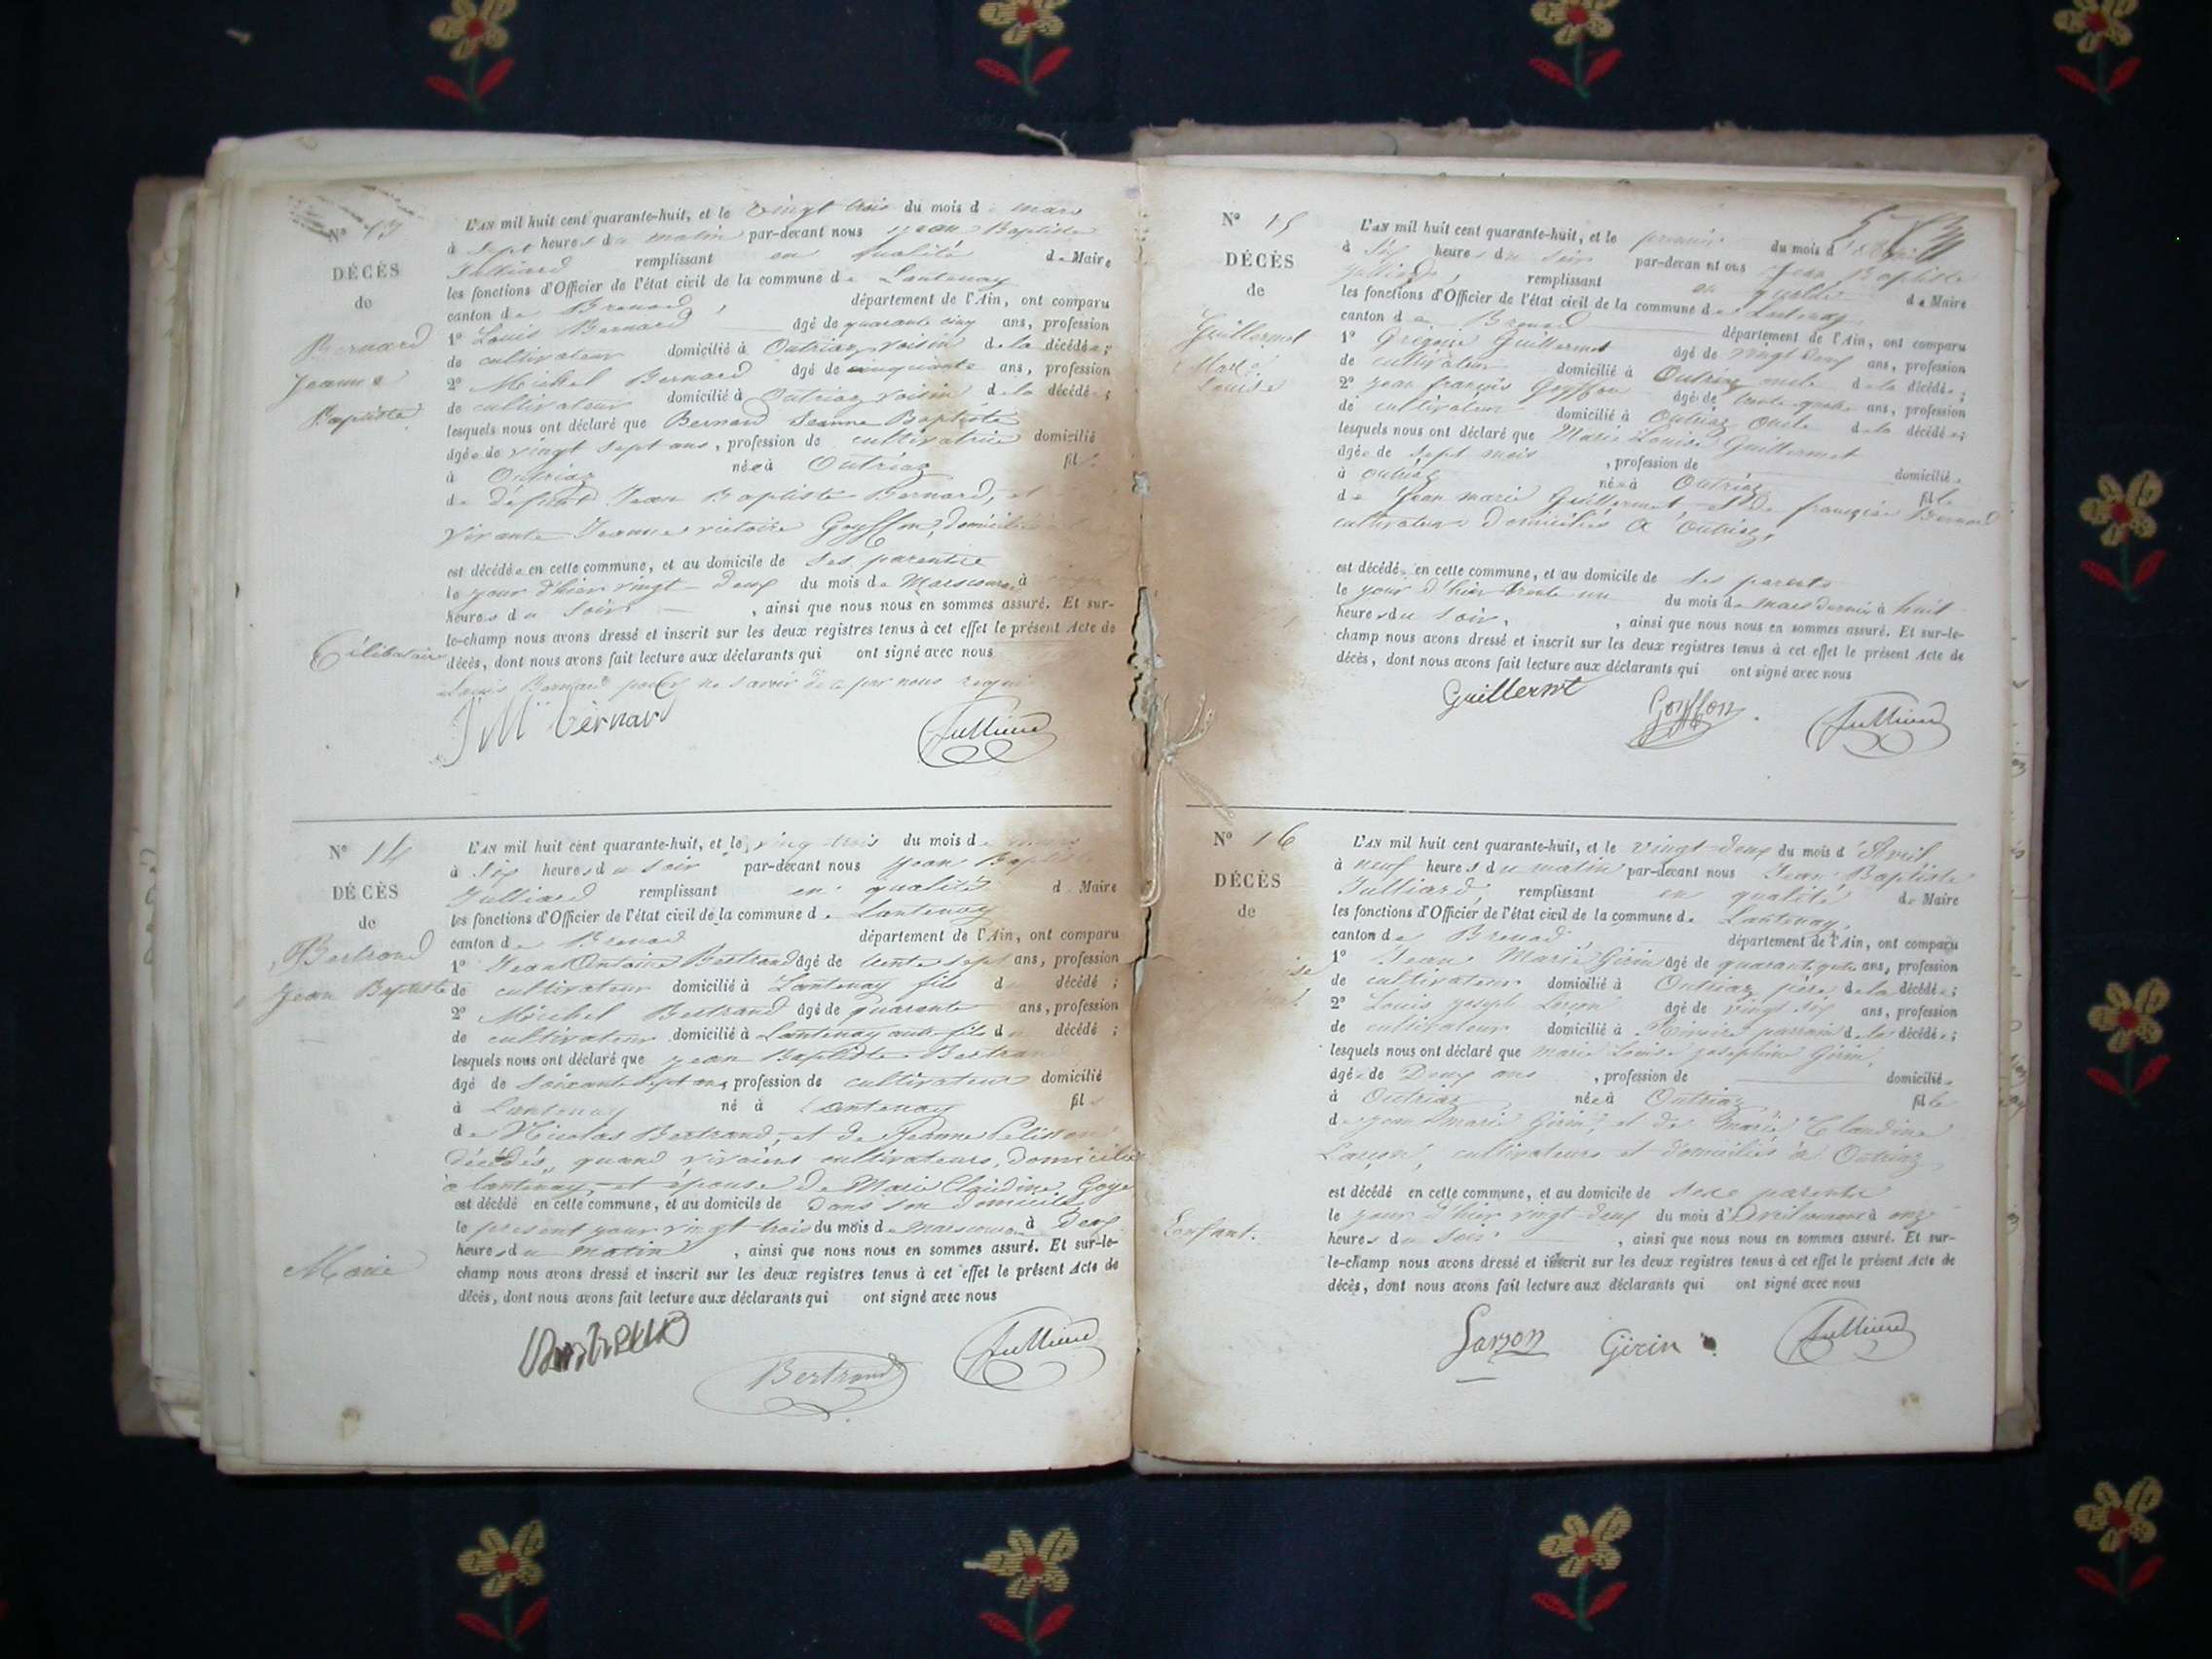 Nº 13
DÉCÈS
de
Bernard
Jeanne
Baptiste
Célibataire
L'AN mil huit cent quarante-huit, et le vingt trois du mois de mars
à sept heures du matin par-devant nous Jean Baptiste
Julliard remplissant en qualité de Maire
les fonctions d'Officier de l'état civil de la commune de Lantenay
canton de Brenod, département de l'Ain, ont comparu
1º Louis Bernard âgé de quarante cinq ans, profession
de cultivateur domicilié à Outriaz voisin de la décédée;
2º Michel Bernard âgé de cinquante ans, profession
de cultivateur domicilié à Outriaz voisin de la décédée;
lesquels nous ont déclaré que Bernard Jeanne Baptiste
âgée de vingt sept ans, profession de cultivatrice domicilié
à Outriaz née à Outriaz fil
de défunt Jean Baptiste Bernard, et
vivante Jeanne victoire Goyffon, domiciliée
est décédée en cette commune, et au domicile de ses
le jour d'hier vingt-deux du mois de Mars courant à
heures du soir, ainsi que nous nous en sommes assuré. Et sur-
le-champ nous avons dressé et inscrit sur les deux registres tenus à cet effet le présent Acte de
décès, dont nous avons fait lecture aux déclarants qui ont signé avec nous
Louis Bernard pour ne savoir de ce par nous requi
Bernard
Julliard
Nº 14
DÉCÈS
de
Bertrand
Jean Baptiste
Marié
L'AN mil huit cent quarante-huit, et le vingt trois du mois de mars
à six heures du soir par-devant nous Jean Baptiste
Julliard remplissant en qualité d Maire
les fonctions d'Officier de l'état civil de la commune de Lantenay
canton de Brenod département de l'Ain, ont comparu
1º Jean Antoine Bertrand âgé de trente sept ans, profession
de cultivateur domicilié à Lantenay fils du décédé;
2º Michel Bertrand âgé de quarante ans, profession
de cultivateur domicilié à Lantenay autre fils du décédé;
lesquels nous ont déclaré que Jean Baptiste Bertrand
âgé de soixante sept ans, profession de cultivateur domicilié
à Lantenay né à Lantenay fils
de Nicolas Bertrand, et de Jeanne
décédés, quand vivaient cultivateurs, domiciliés
à Lantenay, et épouse de Marie Claudine Goy
est décédé en cette commune, et au domicile de dans son domicile
le présent jour vingt-trois du mois de mars courant à deux
heures du matin, ainsi que nous nous en sommes assuré. Et sur-le-
champ nous avons dressé et inscrit sur les deux registres tenus à cet effet le présent Acte de
décès, dont nous avons fait lecture aux déclarants qui ont signé avec nous
Bertrand
Julliard
Nº 15
DÉCÈS
de
Guillermet
Marie
Louise
L'AN mil huit cent quarante-huit, et le premier du mois d'Avril
à six heures du soir par-devan nt ous Jean Baptiste
Julliard, remplissant en qualité de Maire
les fonctions d'Officier de l'état civil de la commune de Lantenay
canton de Brenod département de l'Ain, ont comparu
1º Grégoire Guillermet âgé de vingt deux ans, profession
de cultivateur domicilié à Outriaz oncle de la décédée;
2º Jean françois Goyffon âgé de trente quatre ans, profession
de cultivateur domicilié à Outriaz oncle de la décédée;
lesquels nous ont déclaré que Marie Louise Guillermet
âgée de sept mois, profession de domiciliée
à Outriaz née à Outriaz fille
de Jean marie Guillermet, et de françoise Bernard
cultivateurs domiciliés à Outriaz,
est décédée en cette commune, et au domicile de ses parents
le jour d'hier trente un du mois de mars dernier à huit
heures du soir, ainsi que nous nous en sommes assuré. Et sur-le-
champ nous avons dressé et inscrit sur les deux registres tenus à cet effet le présent Acte de
décès, dont nous avons fait lecture aux déclarants qui ont signé avec nous
Guillermet Goyffon Julliard
Nº 16
DÉCÈS
de
Enfant.
L'AN mil huit cent quarante-huit, et le vingt-deux du mois d'Avril
à neuf heures du matin par-devant nous Jean Baptiste
Julliard, remplissant en qualité de Maire
les fonctions d'Officier de l'état civil de la commune de Lantenay,
canton de Brenod département de l'Ain, ont comparu
1º Jean Marie Girin âgé de quarante quatre ans, profession
de cultivateur domicilié à Outriaz père de la décédée;
2º Louis Joseph Larçon âgé de vingt six ans, profession
de cultivateur domicilié à parrain de la décédée;
lesquels nous ont déclaré que marie Louise Joséphine Girin,
âgée de Deux ans, profession de domiciliée
à Outriaz née à Outriaz fille
de Jean marie Girin, et de Marie Claudine
Larçon, cultivateurs et domiciliés à Outriaz
est décédé en cette commune, et au domicile de parents
le jour d'hier vingt-deux du mois d'Avril courant à onze
heures du soir, ainsi que nous nous en sommes assuré. Et sur-
le-champ nous avons dressé et inscrit sur les deux registres tenus à cet effet le présent Acte de
décès, dont nous avons fait lecture aux déclarants qui ont signé avec nous
Larçon Girin Julliard